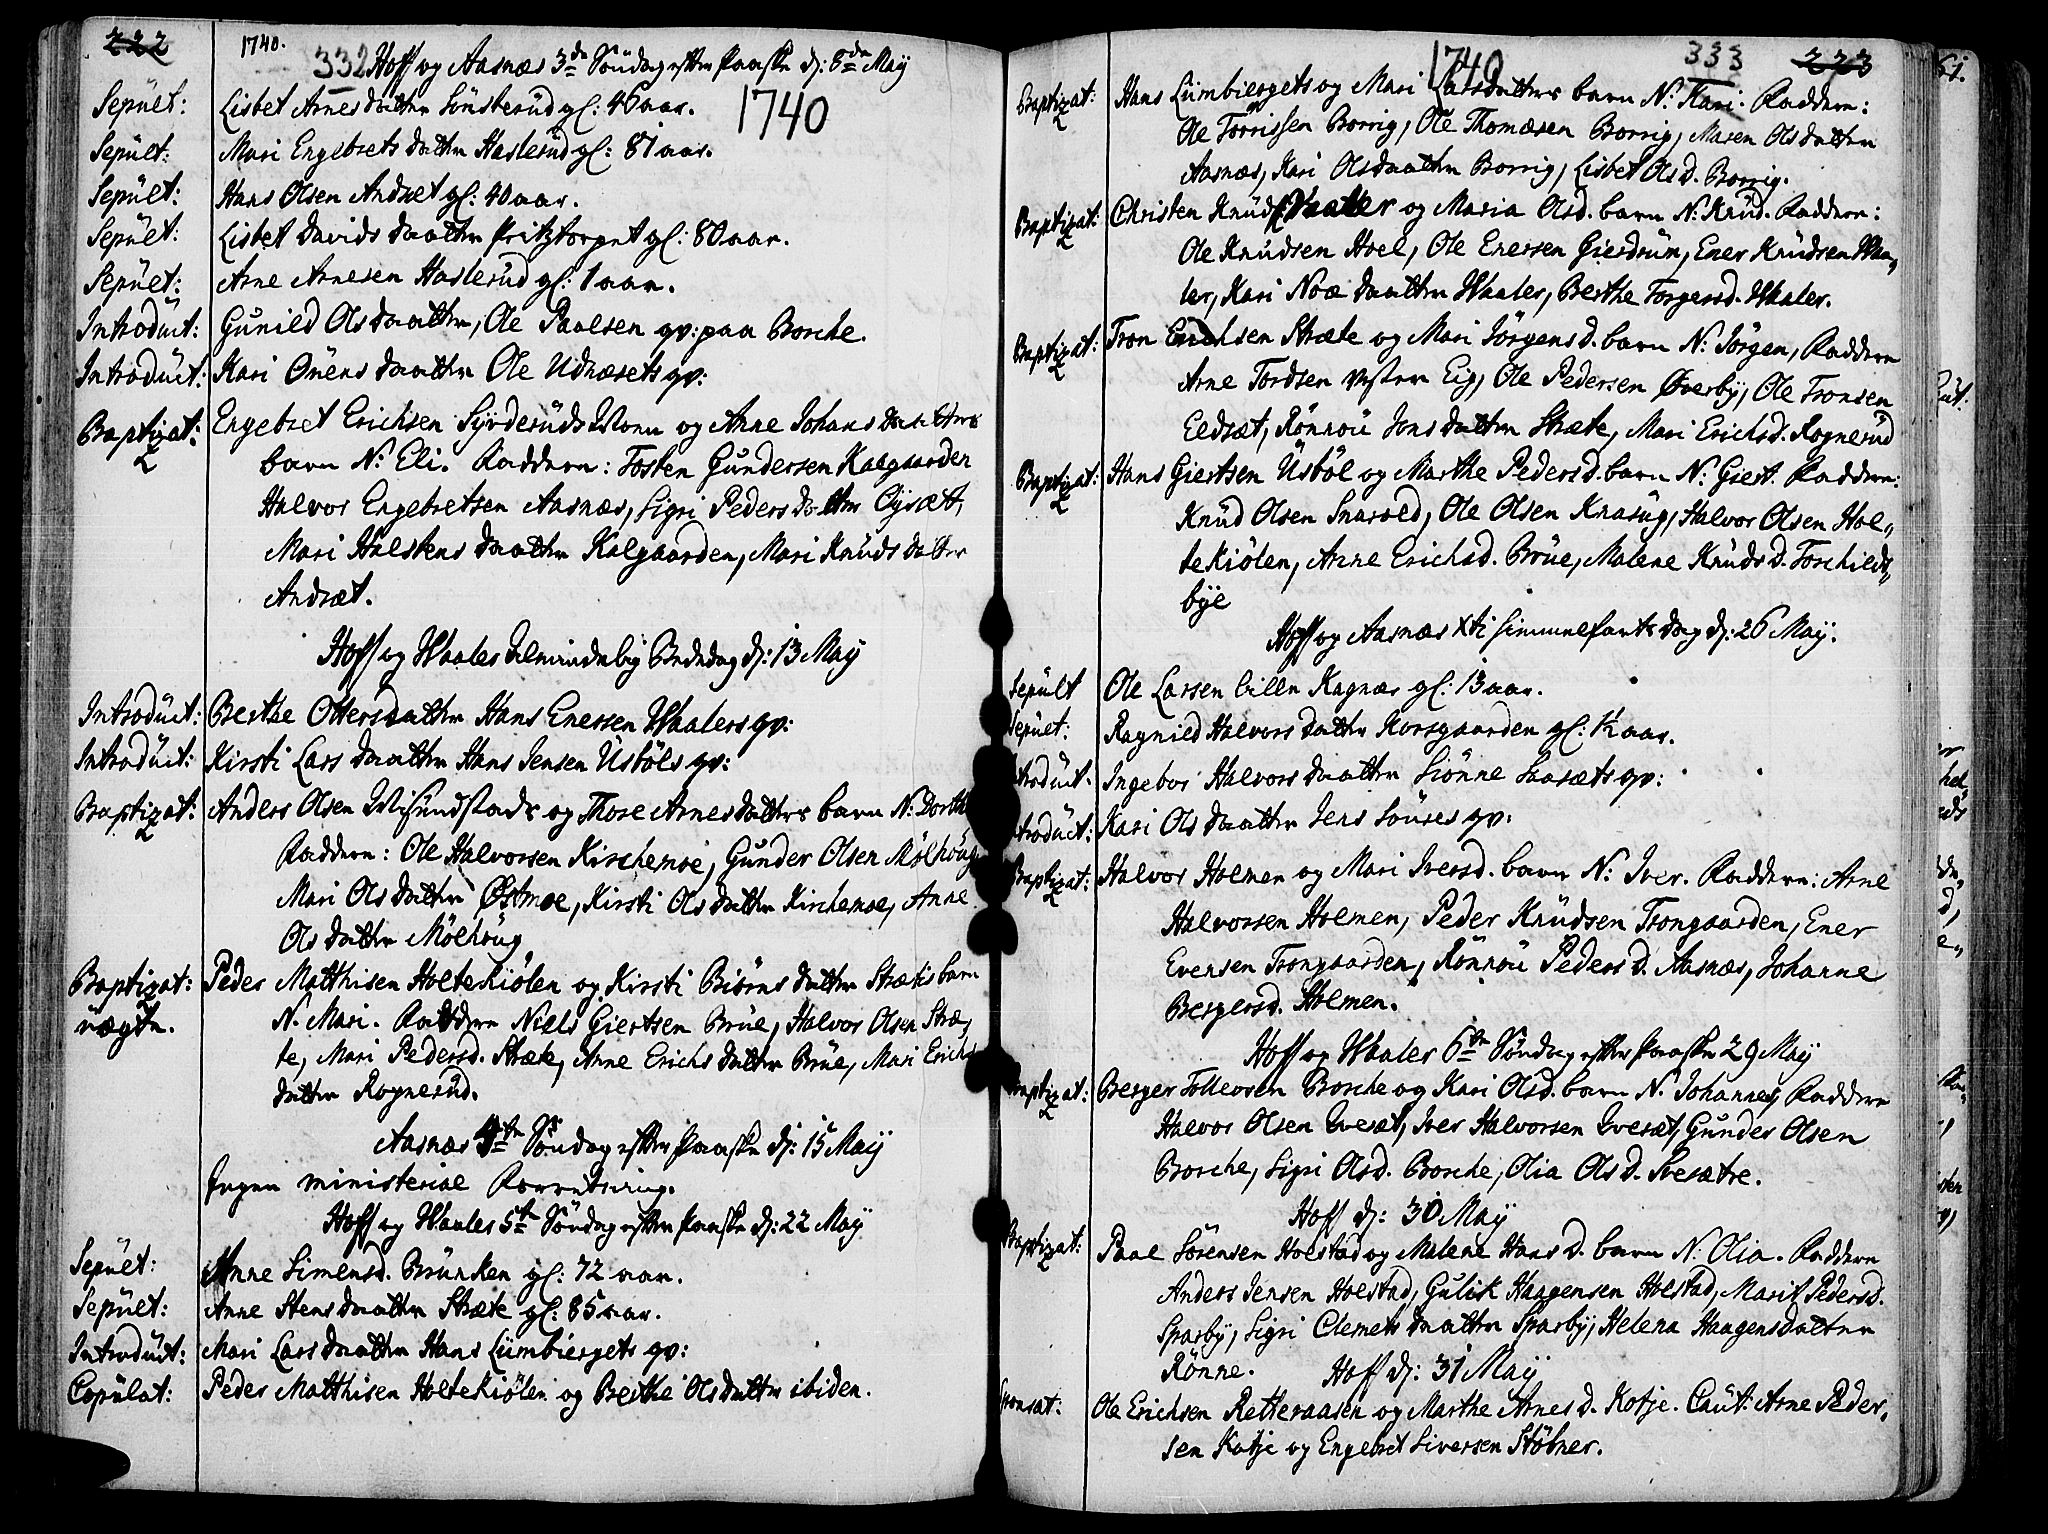 222
1740.
332 Hoff og Aasnæs 3de Söndag efter Paaske d: 8de Maÿ
1740
Sepult: Lisbet Arnesdaatter Sönsterud gl: 46 aar.
Sepult: Mari Engebretsdatter Haslerud gl: 87 aar.
Sepult: Hans Olsen Andset gl: 40 aar.
Sepult: Lisbet Davids daatter Pritztorpet gl: 80 aar.
Sepult: Arne Arnesen Haslerud gl: 1 aar.
Introduct: Gunild Olsdaatter, Ole Paalsen qv: paa Borche.
Introduct: Kari Onens daatter Ole Udnæsets qv:
Baptizat: Engebret Erichsen Syrderuds og Anne Johans daatters
barn N: Eli. Faddere: Tosten Gundersen Kalgaarden
Halvor Engebretsen Aasnæs, Sigri Peders datter Eysæt,
Mari Halstens daatter Kalgaarden, Mari Knuds datter
Andsæt.
Hoff og Waaler Almindelig Bededag d: 13 Maÿ
Introduct: Berthe Ottersdatter Hans Enersen Waalers qv:
Introduct: Kirsti Lars daatter Hans Jensen Usböls qv:
Baptizat: Anders Olsen Wisundstads og Thore Arnesdatters barn N: Dorthe
Faddere: Ole Halvorsen Kirchemoe, Gunder Olsen Mölhöug
Mari Olsdatter Østmoe, Kirsti Olsdatter Kirchemoe, Anne
Olsdatter Mölhöug
Baptizat: Peder Matthisen Holtekiölen og Kirsti Biörns datter Strætes barn
uægte. N. Mari. Faddere Niels Giertsen Brue, Halvor Olsen Stræ,
te, Mari Pedersd. Stræte, Anne Erichs datter Brüe, Mari Erichs
datter Rognerud.
Aasnæs 4de Söndag efter Paaske d: 15 Maÿ
Ingen ministerial Forretning.
Hoff og Waaler 5te Söndag efter Paaske d: 22 Maÿ
Sepult: Anne Simensd. Brünken gl: 72 aar.
Sepult: Anne Stens daatter Stræte gl: 85 aar.
Introduct: Mari Lars daatter Hans Lümbiergets qv:
Copulat: Peder Matthisen Holtekiölen og Berthe Olsdatter ibiden.
1740
333 223
Baptizat: Hans Lümbiergets og Mari Larsdatters barn N: Kari. Faddere:
Ole Torrissen Borrig, Ole Thomæsen Borrig, Maren Olsdatter
Aasnæs, Kari Olsdaatter Borrig, Lisbet Olsd. Borrig.
Baptizat: Christen Knuds. Waaler og Maria Olsd. barn N: Knud. Faddere:
Ole Knudsen Hoel, Ole Enersen Gierdrum, Ener Knudsen Waa,,
ler, Kari Noæ daatter Waaler, Berthe Torgersd. Waaler.
Baptizat: Tron Erichsen Stræte og Mari Jörgensd. barn N: Jörgen, Faddere
Arne Tordsen Vester Eig, Ole Pedersen Øverby, Ole Tronsen
Eldsæt, Rönnou Jonsdatter Stræte, Mari Erichsd. Rognerud
Baptizat: Hans Giertsen Usböl og Marthe Pedersd. barn N: Giert. Faddere:
Knud Olsen Snarold, Ole Olsen Knasüg, Halvor Olsen Hol,,
tekiölen, Anne Erichsd. Brüe, Malene Knudsd. Torchilds,,
bye
Hoff og Aasnæs Xti Himmelfarts dag d: 26 Maÿ.
Sepult Ole Larsen lille Kagnæs gl: 13 aar.
Sepult: Ragnild Halvors datter Korsgaarden gl: ½ aar.
Introduct. Ingebor Halvors daatter Siönne Saasæts qv:
Introduct: Kari Ols daatter Jens Sönses qv:
Baptizat: Halvor Holmen og Mari Iversd. barn N: Iver. Faddere: Arne
Halvorsen Holmen, Peder Knudsen Trongaarden, Ener
Evensen Trongaarden, Rönnou Pedersd. Aasnæs, Johanne
Bergersd. Holmen.
Hoff og Waaler 6te Söndag efter Paaske 29 Maÿ
Baptizat: Berger Tollevsen Borche og Kari Olsd. barn N. Johannes, Faddere
Halvor Olsen Ivesæt, Iver Halvorsen Ivesæt, Gunder Olsen
Borche, Sigri Olsd. Borche, Olia Olsd. Svesætre.
Hoff d: 30 Maÿ
Baptizat: Paal Sörensen Holstad og Malene Hansd. barn N: Olia. Faddere
Anders Jensen Holstad, Gulik Haagensen Holstad, Marit Pedersd.
Sparby, Sigri Clemetsdaatter Sparby, Helena Haagensdatter
Rönne. Hoff d: 31 Maÿ
Sponsat: Ole Erichsen Retteraasen og Marthe Arnesd. Kotje. Caut: Arne Peder,
sen Kotje og Engebret Siversen Stöbner.